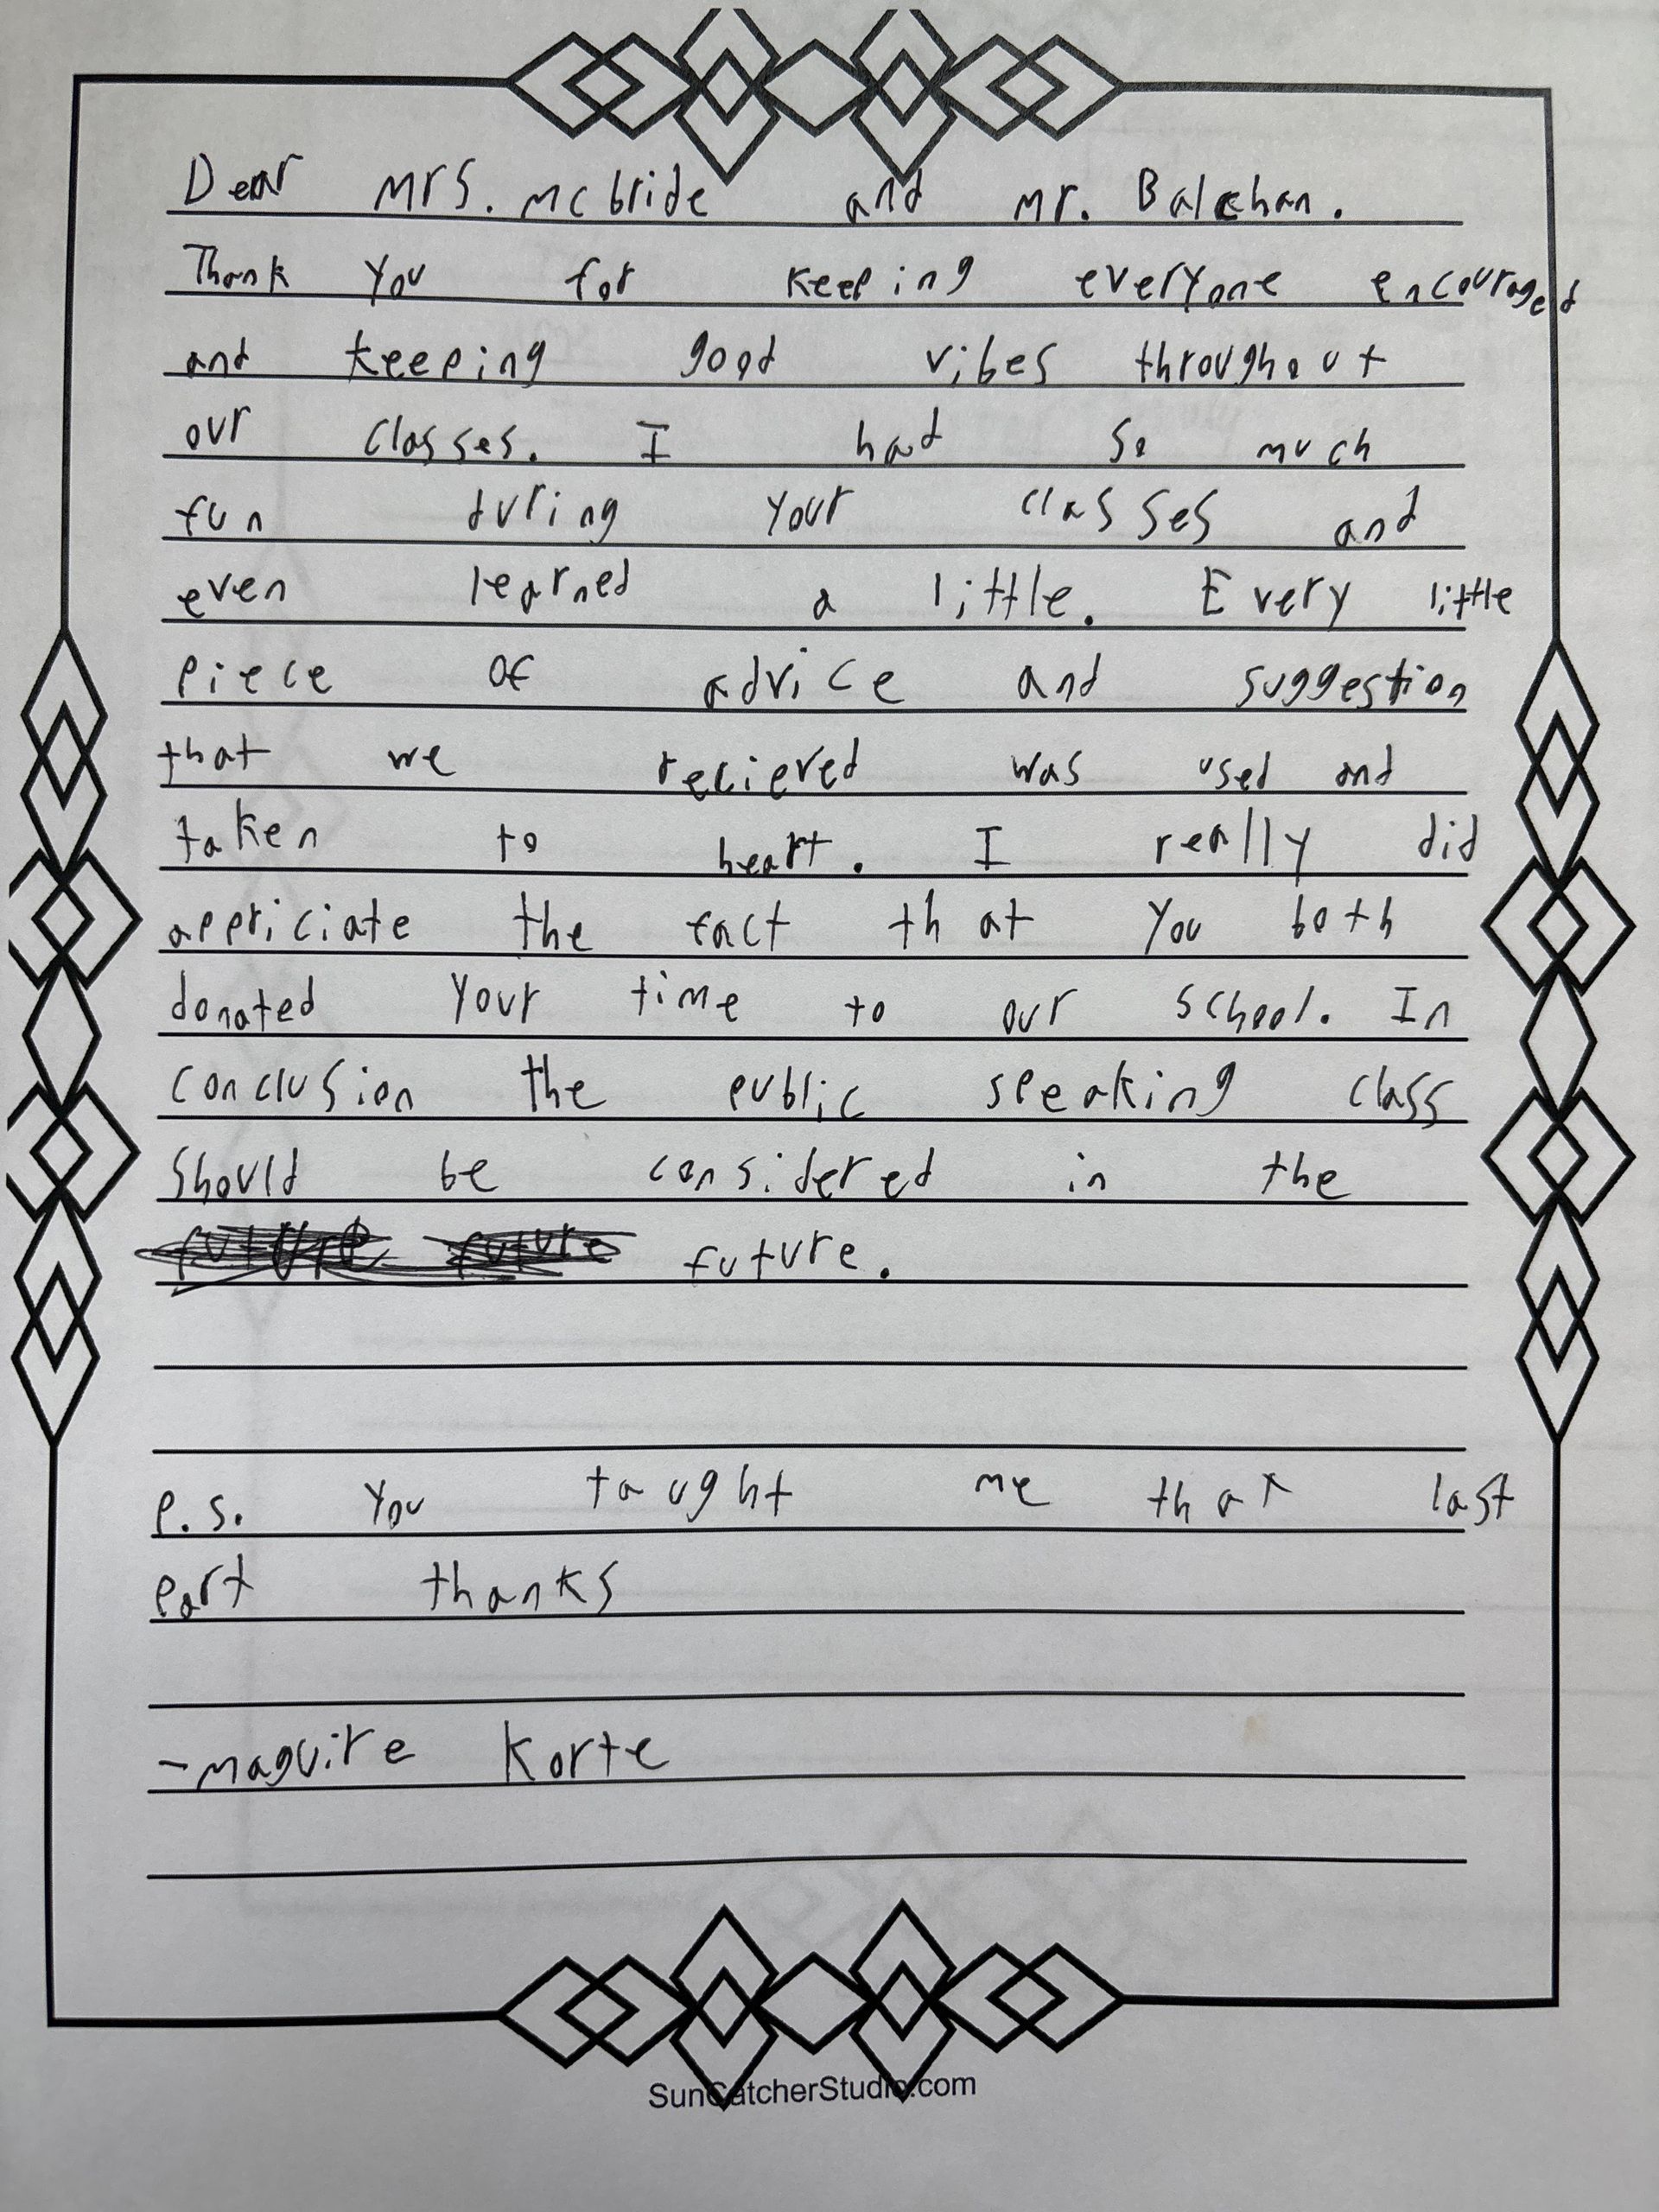 Dear Mrs. McBride and Mr. Balchan.
Thank you for keeping everyone encouraged
and keeping good vibes throughout
our classes. I had so much
fun during your classes and
even learned a little. Every little
piece of advice and suggestion
that we recieved was used and
taken to heart. I really did
appriciate the fact that you both
donated your time to our school. In
conclusion the public speaking class
should be considered in the
future future future.
P.S. you taught me that last
part thanks
-Maguire Korte
SunCatcherStudio.com